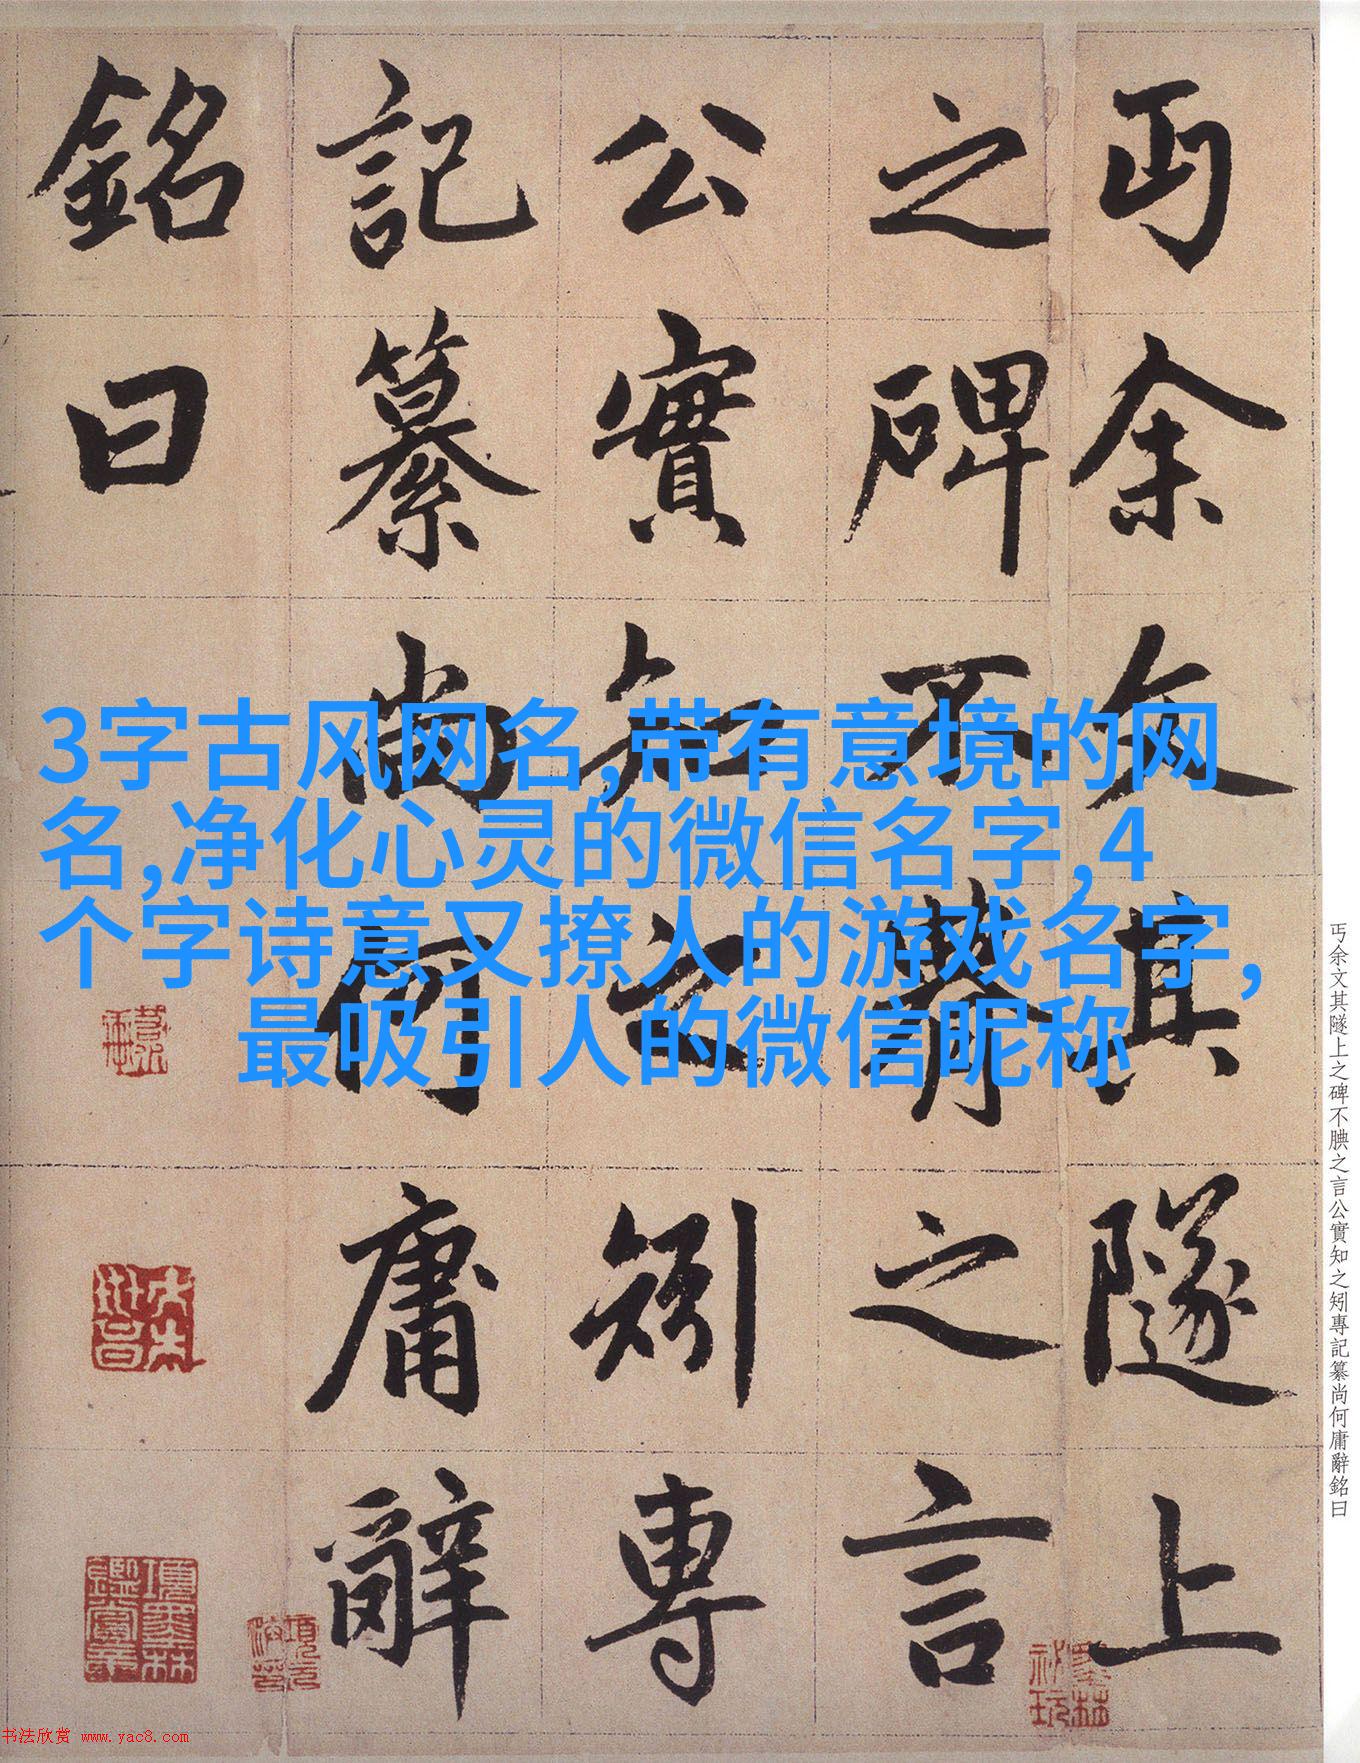 丏余文其隧上
之碑不腆之言
公實知之矧專
記纂尚何庸辭
銘曰
3字古风网名,带有意境的网
名,净化心灵的微信名字,4
个字诗意又撩人的游戏名字,
最吸引人的微信昵称
丏余文其隧上之碑不腆之言公實知之矧專記纂尚何庸辭銘曰
书法欣赏 www.yac8.com